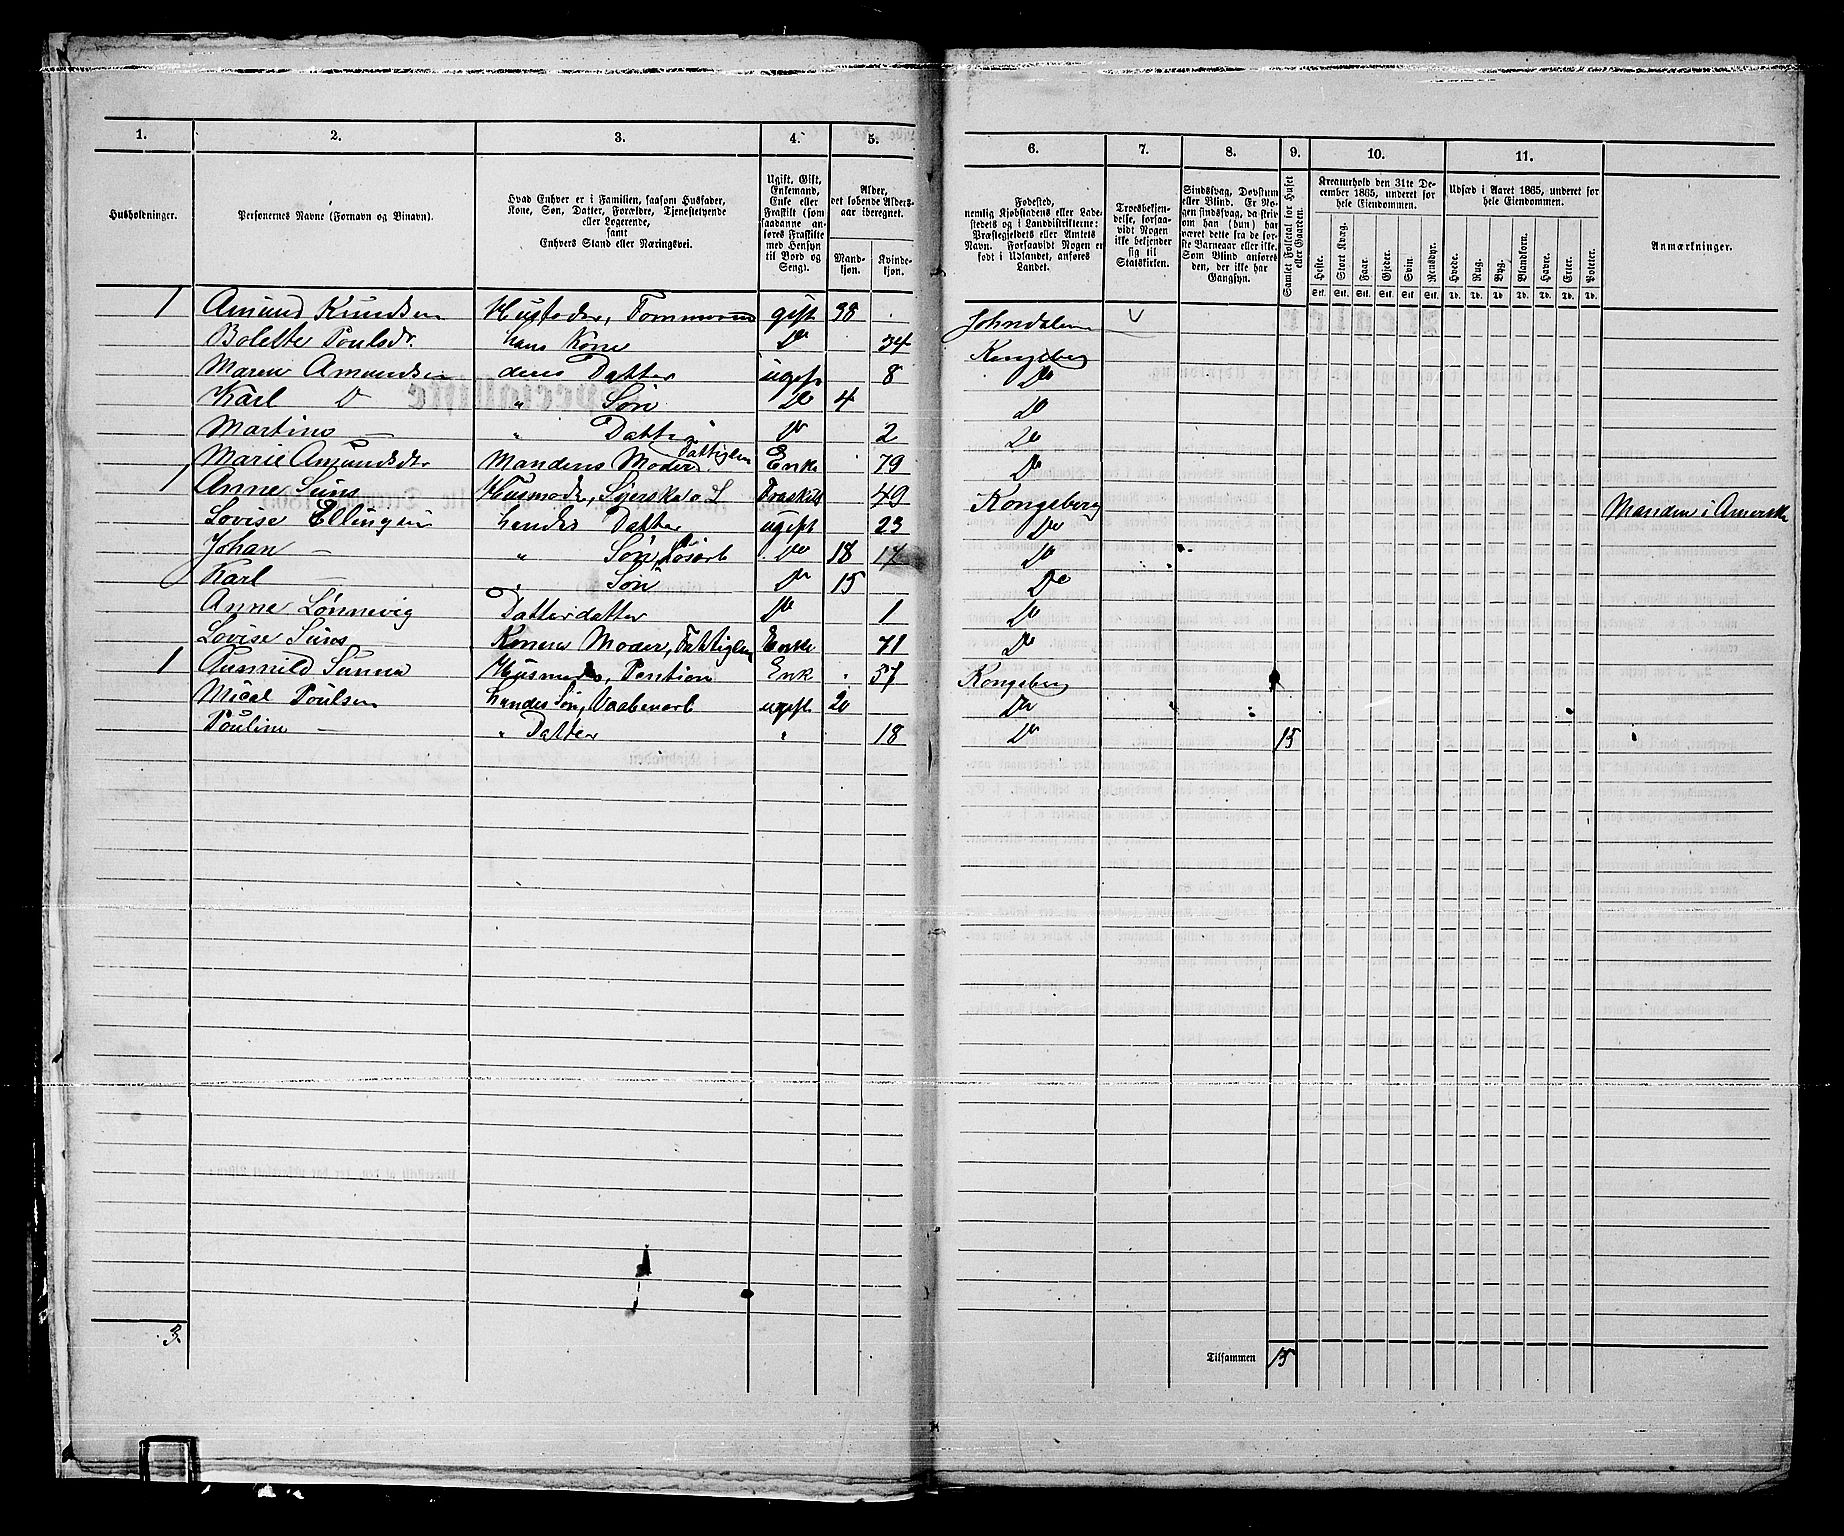 1. 2. 3. 4. 5. 6. 7. 8. 9. 10. 11.
Husholdninger.
Personernes Navne (Fornavn og Binavn).
Hvad Enhver er i Familien, saasom Husfader, Kone, Søn, Datter, Forældre, Tjenestetyende eller Logerende, samt Enhvers Stand eller Næringsvei.
Ugift, Gift, Enkemand, Enke eller Fraskilt (som saadanne anføres Fraskilte med Hensyn til Bord og Seng).
Alder, det løbende Aldersaar iberegnet.
Mandkjøn. Kvindekjøn.
Fødested, nemlig Kjøbstadens eller Ladestedets og i Landdistrikterne: Præstegjeldets eller Amtets Navn. Forsaavidt Nogen er født i Udlandet, anføres Landet.
Troesbekjendelse, forsaavidt Nogen ikke bekjender sig til Statskirken.
Sindssvag, Døvstum eller Blind. Er Nogen sindssvag, da skriv om han (hun) har været dette fra de første Barneaar eller ikke. Som Blind anføres den, der ikke har Gangsyn.
Samlet Folketal for Huset eller Gaarden.
Kreaturhold den 31te December 1865, underet for hele Eiendommen.
Heste. Stort Kvæg. Faar. Gjeder. Svin. Rensdyr.
Stk. Stk. Stk. Stk. Stk. Stk.
Udsæd i Aaret 1865, underet for hele Eiendommen.
Hvede. Rug. Byg. Blandkorn. Havre. Erter. Poteter.
Td. Td. Td. Td. Td. Td. Td.
Anmærkninger.
1 Amund Knudsen Husfader, Tommermand gift 38 Johndalen
Bolette Poulsdr. hans Kone Do 34 Kongsberg
Maren Amundsen deres Datter ugift 8 Do
Karl D " Søn Do 4 Do
Martine — " Datter Do 2 Do
Marie Amundsdr Mandens Moder, Fattiglem Enke 79 Do
1 Anne Suns Husmoder, Fraskilt 49 Kongsberg Manden i Amerika
Lovise Ellingsen hendes Datter ugift 23 Do
Johan — " Søn, Løsarb Do 18 17 Do
Karl — Søn Do 15 Do
Anne Lønnevig Datterdatter Do 1 Do
Lovise Suns Konens Moder, Fattiglem Enke 71 Do
1 Gunnild Husmoder, Pention Enk 57 Kongsberg
Micel Poulsen hendes Søn, Vaabenarb ugift 20 Do
Pouline — " Datter " 18 Do 15
3.
Tilsammen 15